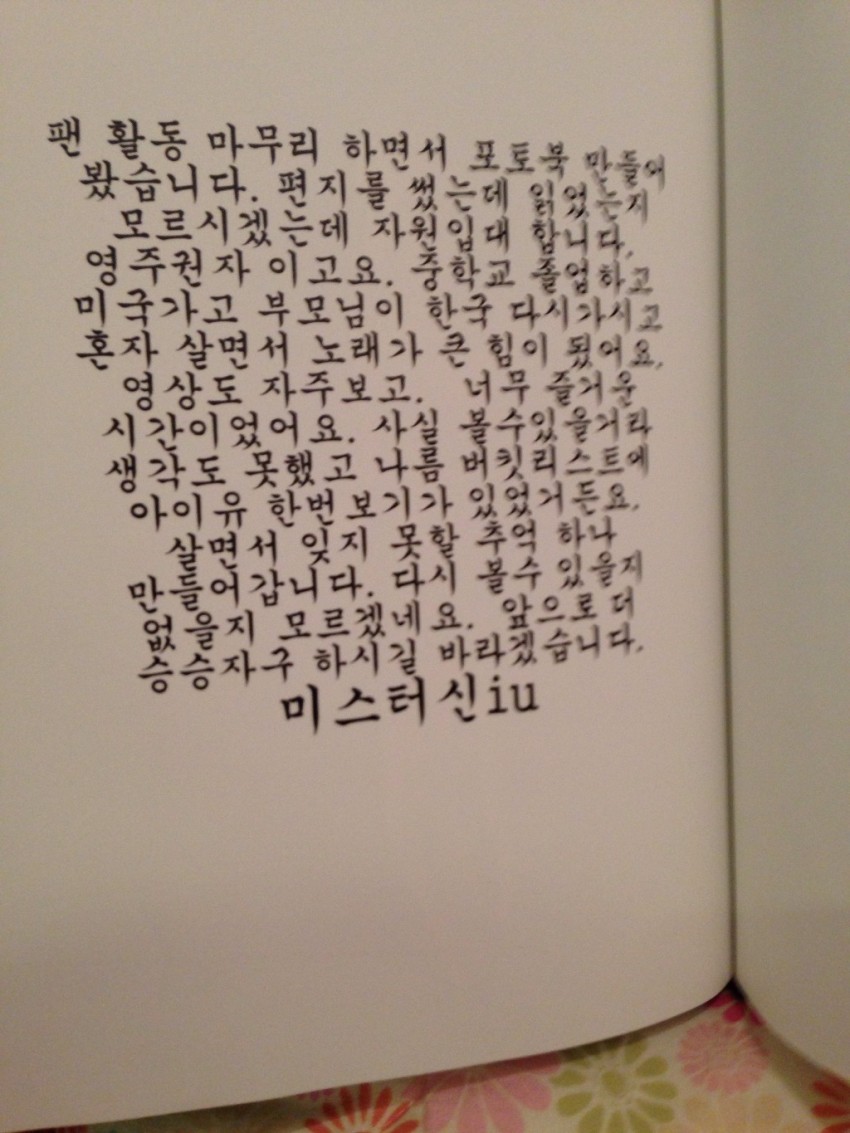 팬 활동 마무리 하면서 포토북 만들어
봤습니다. 편지를 썼는데 읽었는지
모르시겠는데 자원입대 합니다.
영주권자 이고요. 중학교 졸업하고
미국가고 부모님이 한국 다시가시고
혼자 살면서 노래가 큰 힘이 됬어요.
영상도 자주보고. 너무 즐거운
시간이었어요. 사실 볼수있을거라
생각도 못했고 나름 버킷리스트에
아이유 한번보기가 있었거든요.
살면서 잊지 못할 추억 하나
만들어갑니다. 다시 볼수 있을지
없을지 모르겠네요. 앞으로 더
승승자구 하시길 바라겠습니다.
미스터신iu